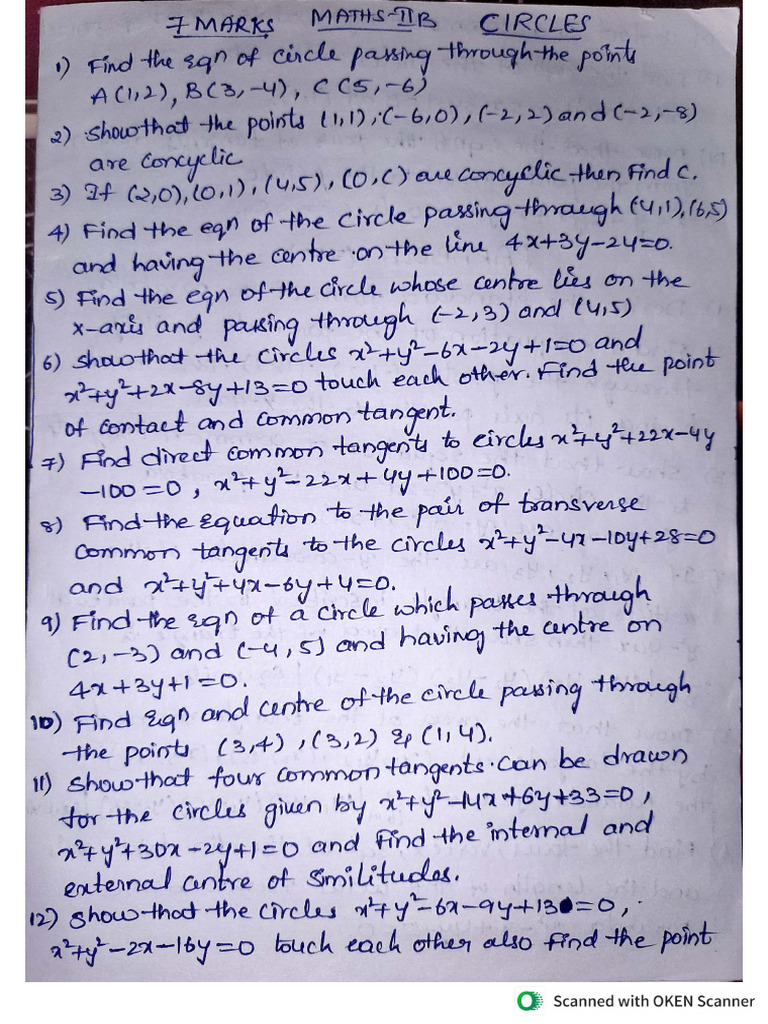 7 MARKS MATHS-IIB CIRCLES
1) Find the eqn of circle passing through the points
A(1,2), B(3,-4), C(5,-6)
2) Show that the points (1,1), (-6,0), (-2,2) and (-2,-8)
are concyclic
3) If (2,0), (0,1), (4,5), (0,C) are concyclic then find C.
4) Find the eqn of the circle passing through (4,1), (6,5)
and having the centre on the line 4x+3y-24=0.
5) Find the eqn of the circle whose centre lies on the
x-axis and passing through (-2,3) and (4,5)
6) Show that the circles x²+y²-6x-2y+1=0 and
x²+y²+2x-8y+13=0 touch each other. Find the point
of contact and common tangent.
7) Find direct common tangents to circles x²+y²+22x-4y
-100=0, x²+y²-22x+4y+100=0.
8) Find the equation to the pair of transverse
common tangents to the circles x²+y²-4x-10y+28=0
and x²+y²+4x-6y+4=0.
9) Find the eqn of a circle which passes through
(2,-3) and (-4,5) and having the centre on
4x+3y+1=0.
10) Find eqn and centre of the circle passing through
the points (3,4), (3,2) & (1,4).
11) Show that four common tangents can be drawn
for the circles given by x²+y²-14x+6y+33=0,
x²+y²+30x-2y+1=0 and find the internal and
external centre of similitudes.
12) Show that the circles x²+y²-6x-9y+13=0,
x²+y²-2x-16y=0 touch each other also find the point
Scanned with OKEN Scanner